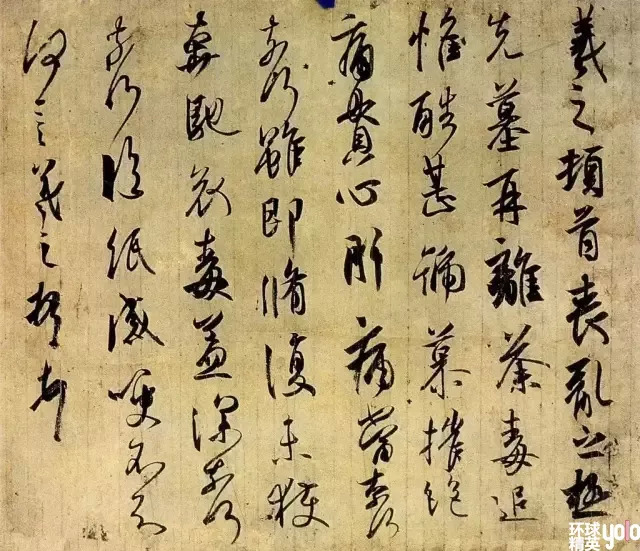 羲之頓首喪亂之極
先墓再離荼毒追
惟酷甚號慕摧絕
痛貫心肝痛當柰何
柰何雖即脩復未獲
奔馳哀毒益深柰何
柰何臨紙感哽不知
何言羲之頓首
环球yolo
精英